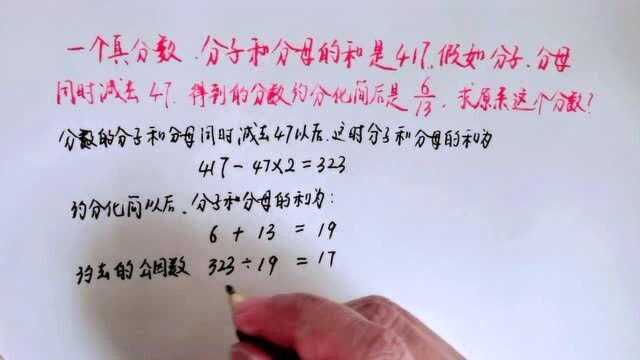 一个真分数.分子和分母的和是417.假如分子.分母
同时减去47.得到的分数约分化简后是6/13.求原来这个分数?
分数的分子和分母同时减去47以后.这时分子和分母的和为
417-47×2=323
约分化简以后.分子和分母的和为:
6+13=19
约去的公因数 323÷19=17